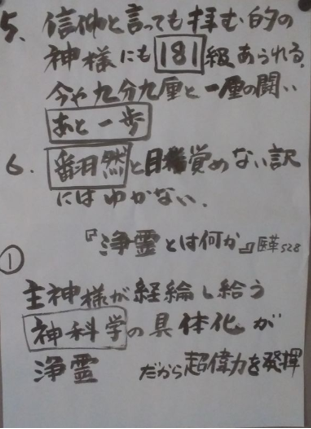 5、信仰と言っても拝む的の
神様にも181級あられる、
今や九分九厘と一厘の闘い
あと一歩
6、翻然と目覚めない訳
にはゆかない、
『浄霊とは何か』医革528
①
主神様が経綸し給う
神科学の具体化が
浄霊 だから超偉力を発揮